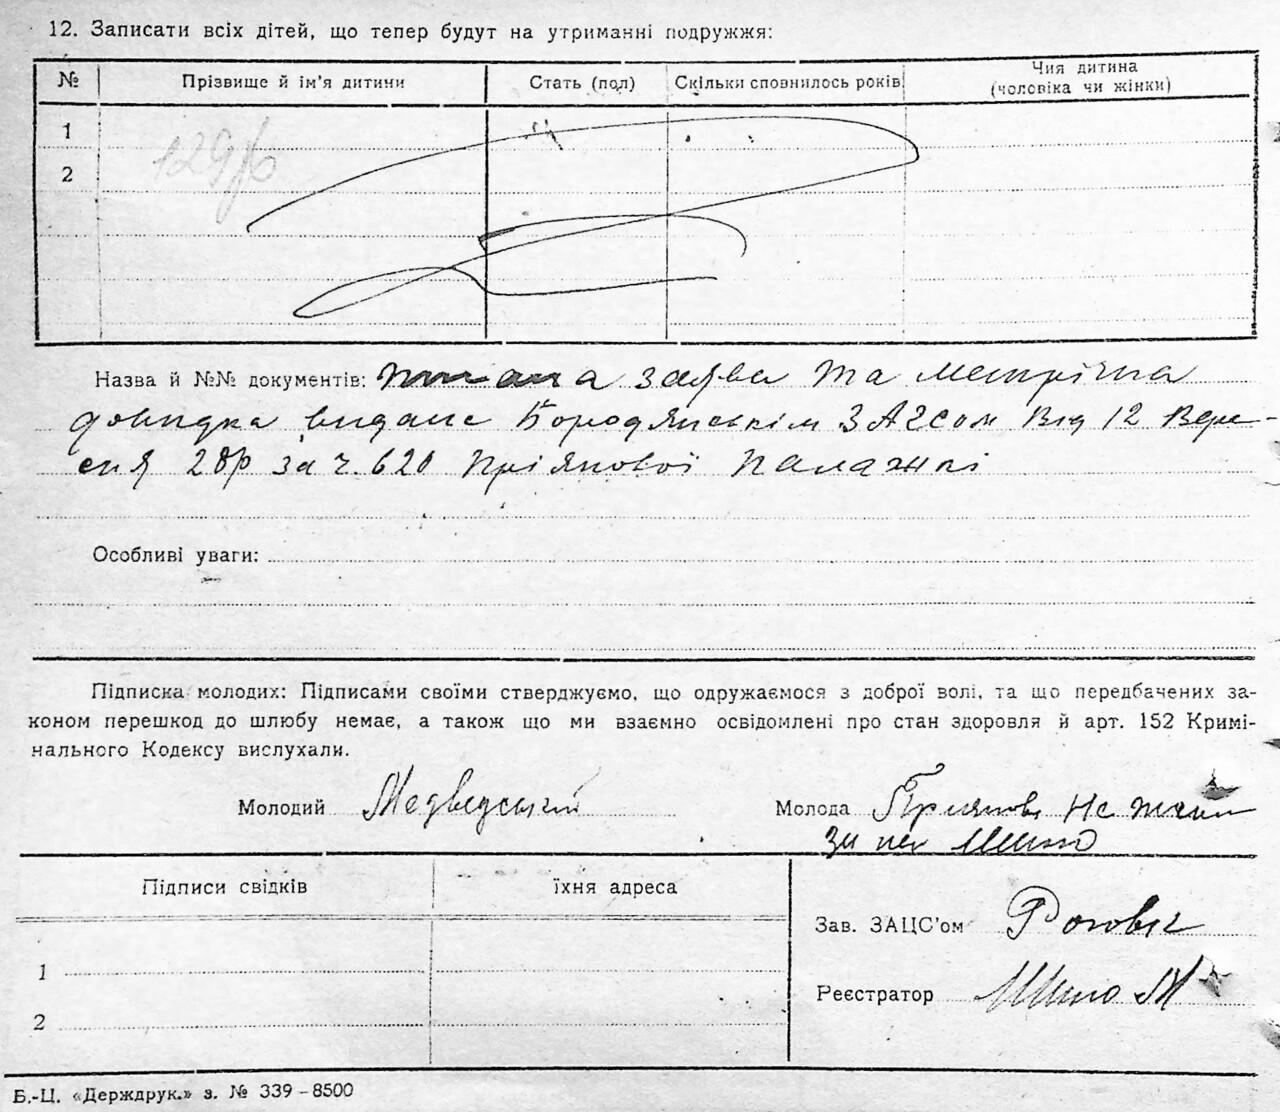 12. Записати всіх дітей, що тепер будут на утриманні подружжя:
№ Прізвище й ім'я дитини Стать (пол) Скільки сповнилось років Чия дитина (чоловіка чи жінки)
1
2
Назва й №№ документів: заява та метрічна
довидка видане Бородянськім ЗАГСом Від 12 Вере-
сня 28р за ч. 620 Пріянової Палажкі
Особливі уваги:
Підписка молодих: Підписами своїми стверджуємо, що одружаємося з доброї волі, та що передбачених за-
коном перешкод до шлюбу немає, а також що ми взаємно освідомлені про стан здоровля й арт. 152 Кримі-
нального Кодексу вислухали.
Молодий Медведський
Молода Пріянова
Підписи свідків їхня адреса
Зав. ЗАЦС'ом
1
Реєстратор
2
Б.-Ц. «Держдрук.» з. № 339-8500